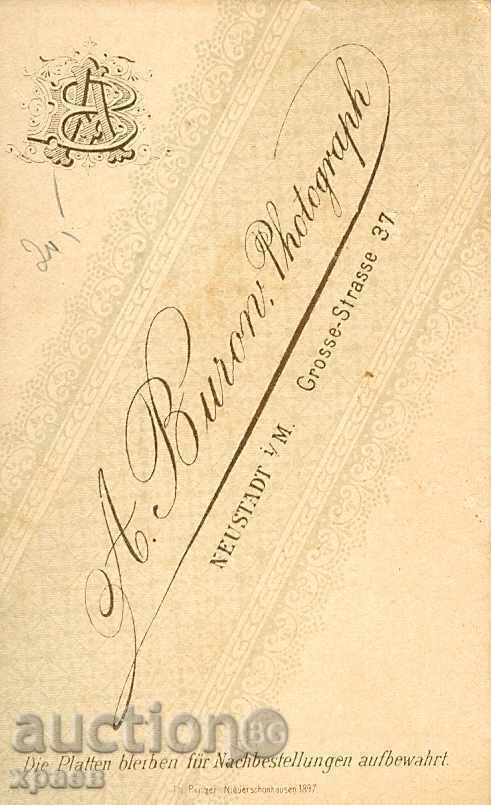 AB
A. Buron, Photograph
NEUSTADT i/M. Grosse-Strasse 37
auction BG
Die Platten bleiben für Nachbestellungen aufbewahrt.
храбв
Niederschönhausen 1897